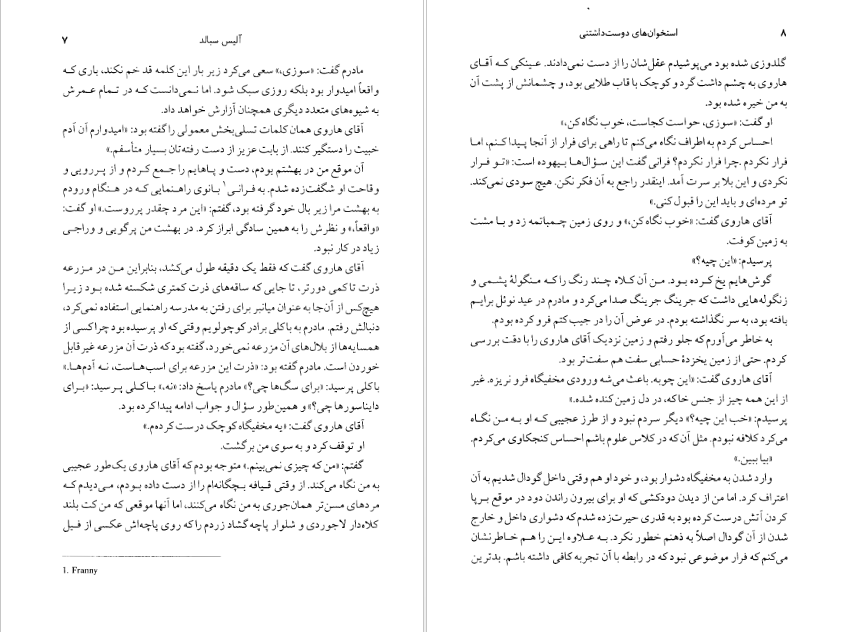 آلیس سبالد
۷
مادرم گفت: «سوزی،» سعی می‌کرد زیر بار این کلمه قد خم نکند، باری که
واقعاً امیدوار بود بلکه روزی سبک شود. اما نمی‌دانست که در تمام عمرش
به شیوه‌های متعدد دیگری همچنان آزارش خواهد داد.
آقای هاروی همان کلمات تسلی‌بخش معمولی را گفته بود: «امیدوارم آن آدم
خبیث را دستگیر کنند. از بابت عزیز از دست رفته‌تان بسیار متأسفم.»
آن موقع من در بهشتم بودم، دست و پاهایم را جمع کردم و از پررویی و
وقاحت او شگفت‌زده شدم. به فرانی۱ بانوی راهنمایی که در هنگام ورودم
به بهشت مرا زیر بال خود گرفته بود، گفتم: «این مرد چقدر پرروست.» او گفت:
«واقعاً،» و نظرش را به همین سادگی ابراز کرد. در بهشت من پرگویی و وراجی
زیاد در کار نبود.
آقای هاروی گفت که فقط یک دقیقه طول می‌کشد، بنابراین من در مزرعه
ذرت تا کمی دورتر، تا جایی که ساقه‌های ذرت کمتری شکسته شده بود زیرا
هیچ‌کس از آن‌جا به عنوان میانبر برای رفتن به مدرسه راهنمایی استفاده نمی‌کرد،
دنبالش رفتم. مادرم به باکلی برادر کوچولویم وقتی که او پرسیده بود چرا کسی از
همسایه‌ها از بلال‌های آن مزرعه نمی‌خورد، گفته بود که ذرت آن مزرعه غیرقابل
خوردن است. مادرم گفته بود: «ذرت این مزرعه برای اسب‌هاست، نه آدم‌ها.»
باکلی پرسید: «برای سگ‌ها چی؟» مادرم پاسخ داد: «نه،» باکلی پرسید: «برای
دایناسورها چی؟» و همین‌طور سؤال و جواب ادامه پیدا کرده بود.
آقای هاروی گفت: «یه مخفیگاه کوچک درست کرده‌م.»
او توقف کرد و به سوی من برگشت.
گفتم: «من که چیزی نمی‌بینم.» متوجه بودم که آقای هاروی یک‌طور عجیبی
به من نگاه می‌کند. از وقتی قیافه بچگانه‌ام را از دست داده بودم، می‌دیدم که
مردهای مسن‌تر همان‌جوری به من نگاه می‌کنند، اما آنها موقعی که من کت بلند
کلاه‌دار لاجوردی و شلوار پاچه گشاد زردم را که روی پاچه‌اش عکسی از فیل
1. Franny
۸
استخوان‌های دوست‌داشتنی
گلدوزی شده بود می‌پوشیدم عقل‌شان را از دست نمی‌دادند. عینکی که آقای
هاروی به چشم داشت گرد و کوچک با قاب طلایی بود، و چشمانش از پشت آن
به من خیره شده بود.
او گفت: «سوزی، حواست کجاست، خوب نگاه کن.»
احساس کردم به اطراف نگاه می‌کنم تا راهی برای فرار از آنجا پیدا کنم، اما
فرار نکردم. چرا فرار نکردم؟ فرانی گفت این سؤال‌ها بیهوده است: «تو فرار
نکردی و این بلا بر سرت آمد. اینقدر راجع به آن فکر نکن. هیچ سودی نمی‌کند.
تو مرده‌ای و باید این را قبول کنی.»
آقای هاروی گفت: «خوب نگاه کن،» و روی زمین چمباتمه زد و با مشت
به زمین کوفت.
پرسیدم: «این چیه؟»
گوش‌هایم یخ کرده بود. من آن کلاه چند رنگ را که منگولهٔ پشمی و
زنگوله‌هایی داشت که جرینگ جرینگ صدا می‌کرد و مادرم در عید نوئل برایم
بافته بود، به سر نگذاشته بودم. در عوض آن را در جیب کتم فرو کرده بودم.
به خاطر می‌آورم که جلو رفتم و زمین نزدیک آقای هاروی را با دقت بررسی
کردم. حتی از زمین یخزدهٔ حسابی سفت هم سفت‌تر بود.
آقای هاروی گفت: «این چوبه. باعث می‌شه ورودی مخفیگاه فرو نریزه. غیر
از این همه چیز از جنس خاکه، در دل زمین کنده شده.»
پرسیدم: «خب این چیه؟» دیگر سردم نبود و از طرز عجیبی که او به من نگاه
می‌کرد کلافه نبودم. مثل آن که در کلاس علوم باشم احساس کنجکاوی می‌کردم.
«بیا ببین.»
وارد شدن به مخفیگاه دشوار بود، و خود او هم وقتی داخل گودال شدیم به آن
اعتراف کرد. اما من از دیدن دودکشی که او برای بیرون راندن دود در موقع برپا
کردن آتش درست کرده بود به قدری حیرت‌زده شدم که دشواری داخل و خارج
شدن از آن گودال اصلاً به ذهنم خطور نکرد. به علاوه این را هم خاطرنشان
می‌کنم که فرار موضوعی نبود که در رابطه با آن تجربه کافی داشته باشم. بدترین